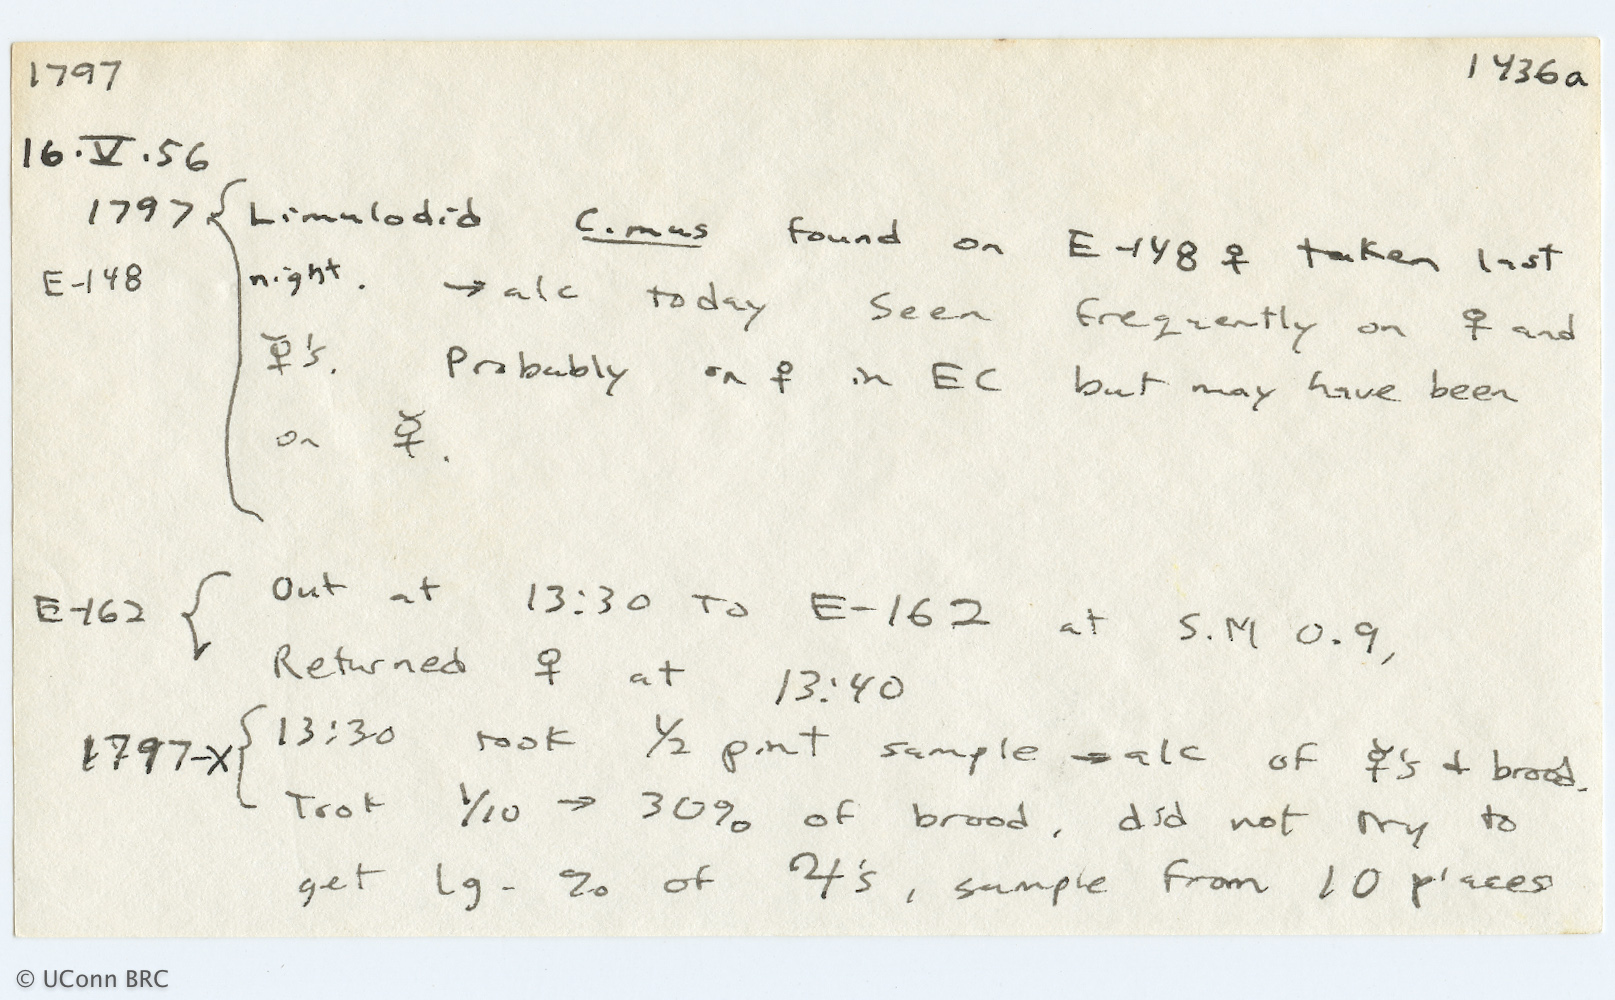 1797 1436a
16.V.56
1797 { Limulodid C. mus found on E-148 ♀ taken last
E-148 night. → alc today Seen frequently on ♀ and
☿'s. Probably on ♀ in EC but may have been
on ☿.
E-162 { Out at 13:30 to E-162 at S.M 0.9,
Returned ♀ at 13:40
1797-X { 13:30 took 1/2 pint sample → alc of ☿'s + brood.
Took 1/10 → 30% of brood, did not try to
get lg. % of ♃'s, sample from 10 places
© UConn BRC